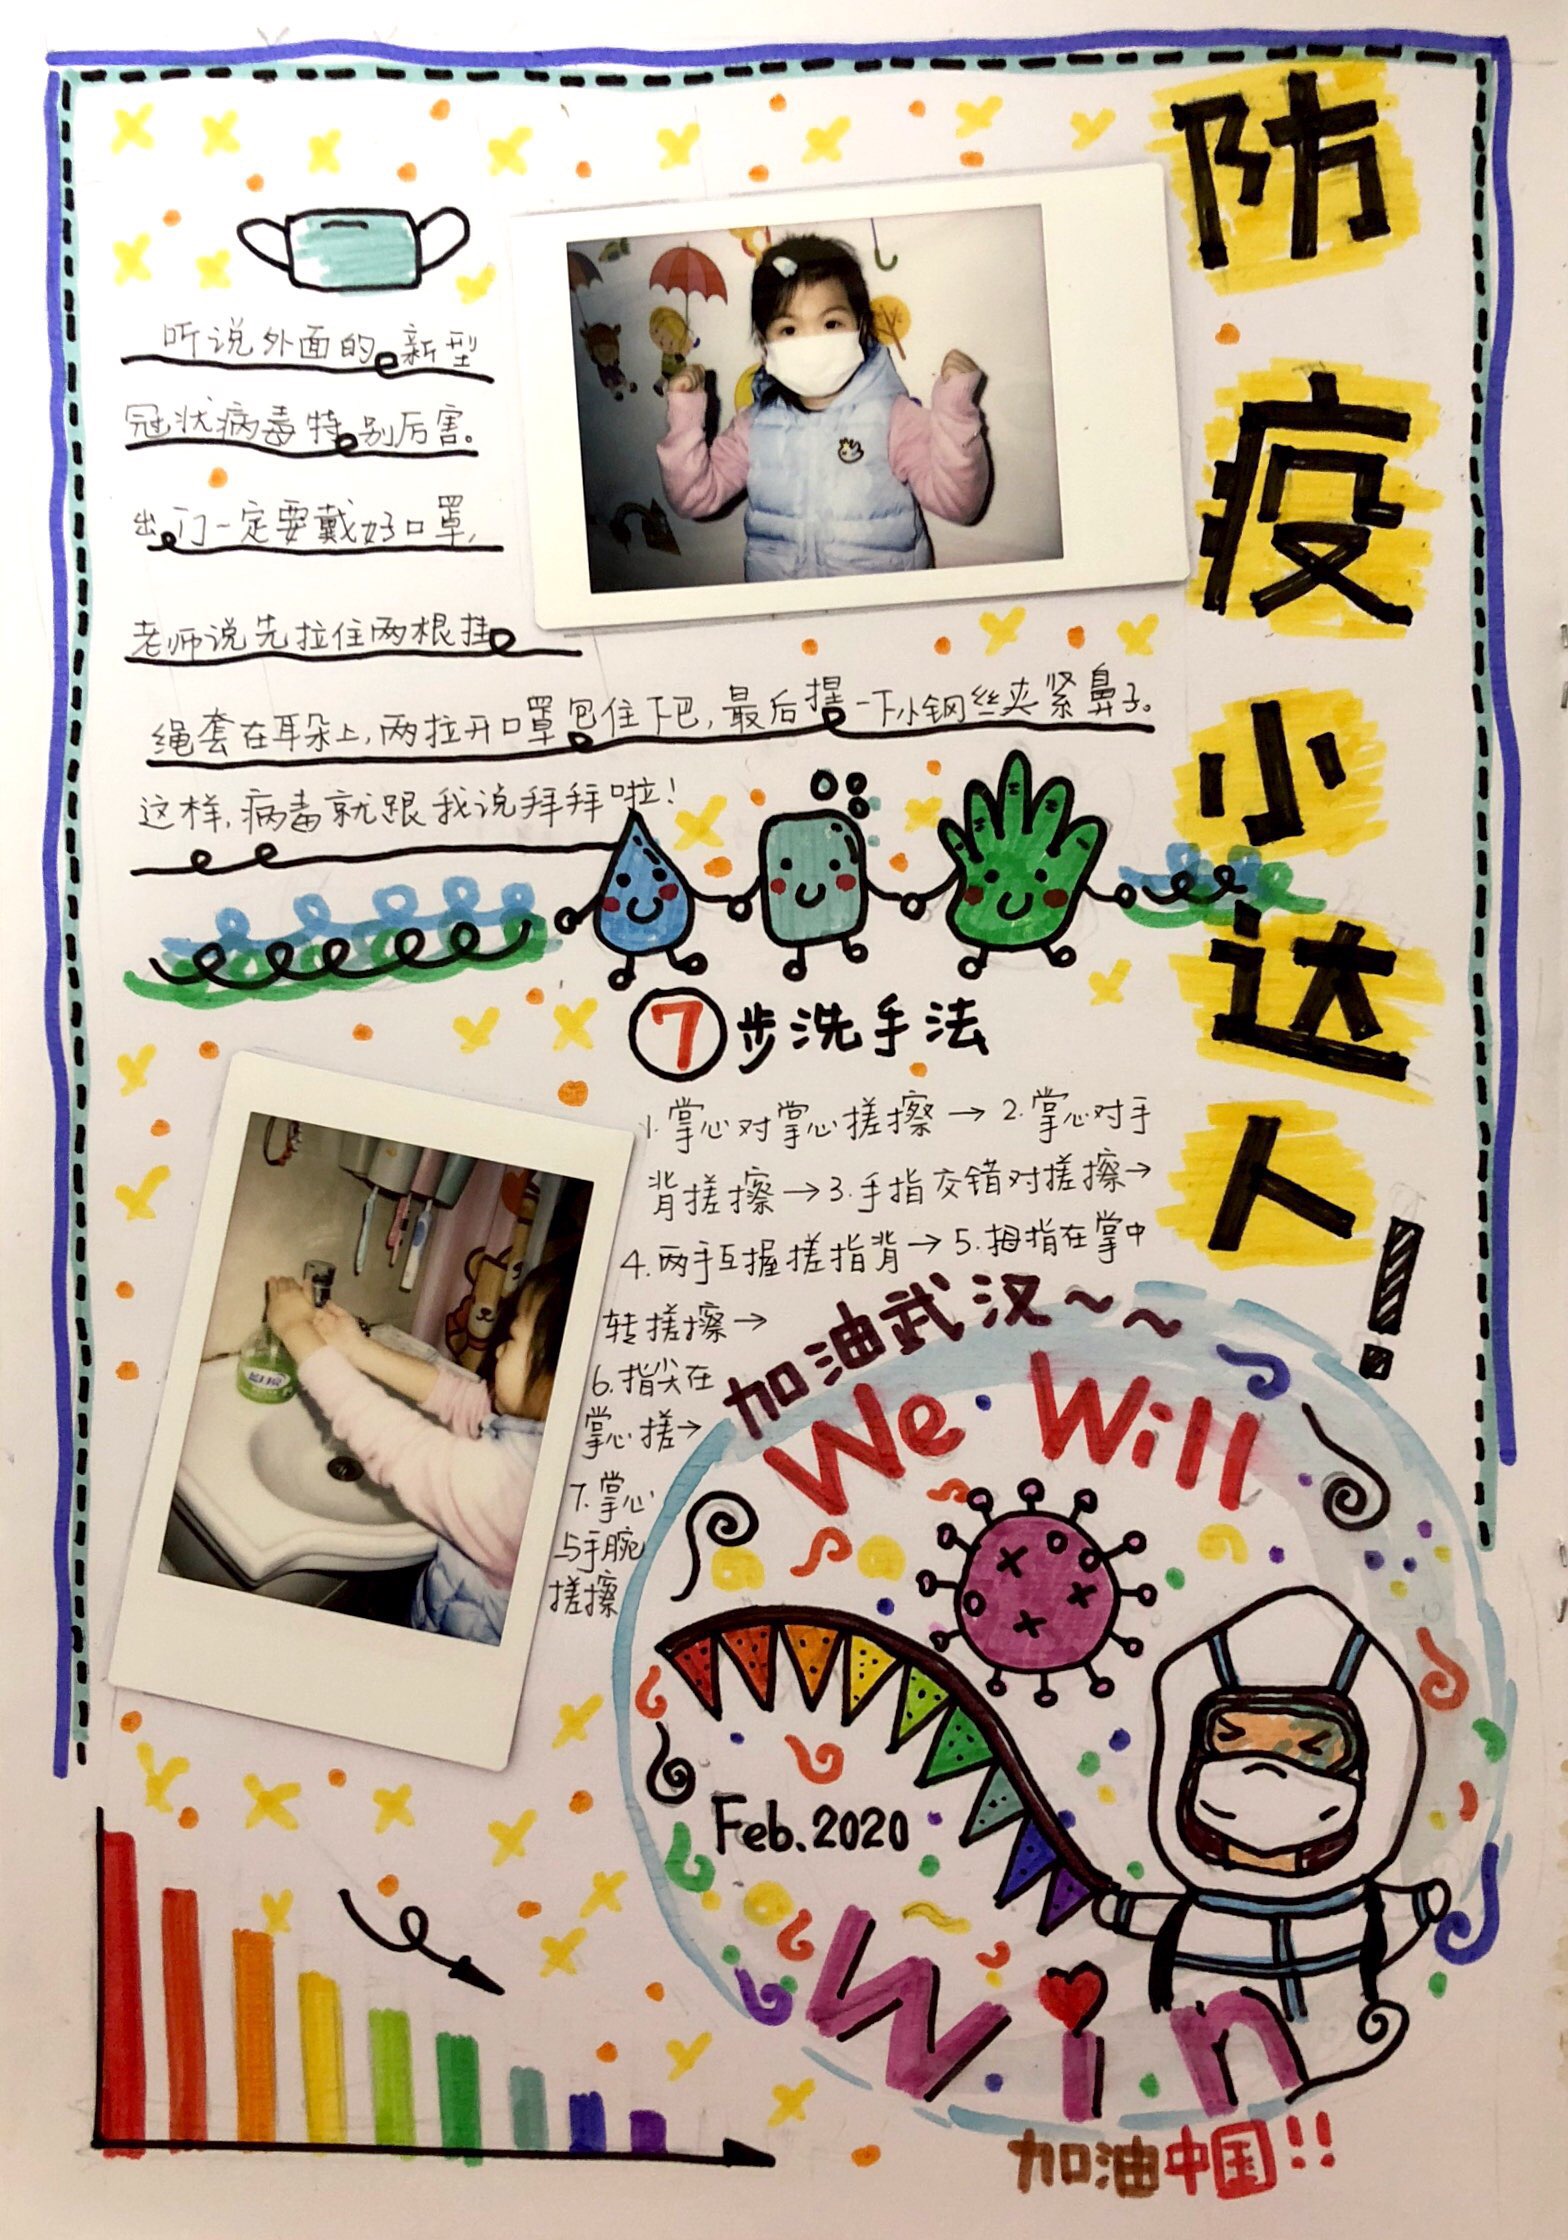 防疫小达人!
听说外面的新型
冠状病毒特别厉害。
出门一定要戴好口罩,
老师说先拉住两根挂
绳套在耳朵上,两拉开口罩包住下巴,最后捏一下小钢丝夹紧鼻子。
这样,病毒就跟我说拜拜啦!
7步洗手法
1.掌心对掌心搓擦→2.掌心对手
背搓擦→3.手指交错对搓擦→
4.两手互握搓指背→5.拇指在掌中
转搓擦→
6.指尖在
掌心搓→
7.掌心
与手腕
搓擦
加油武汉~~
We Will
Feb.2020
Win
加油中国!!